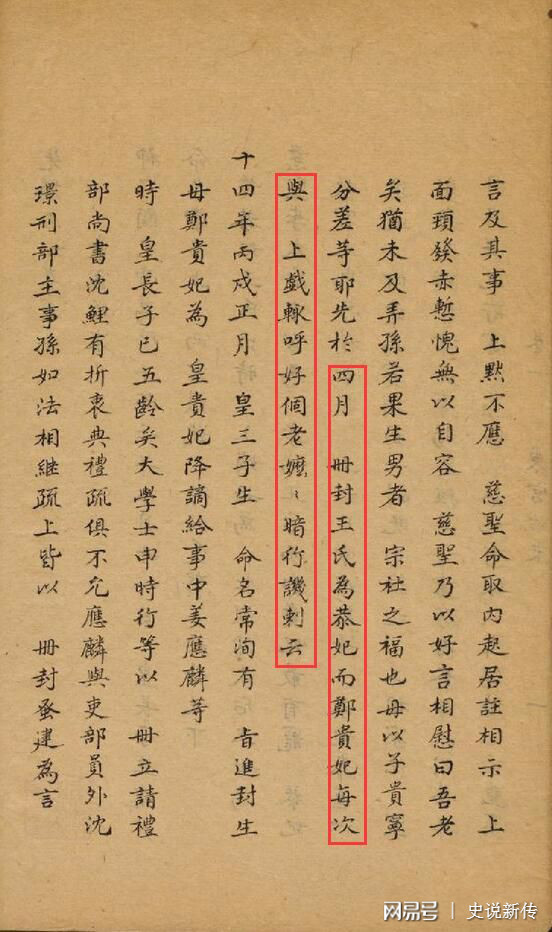 言及其事　上黙不應　慈聖命取內起居註相示　上
面頳發赤慙愧無以自容　慈聖乃以好言相慰曰吾老
矣猶未及弄孫若果生男者　宗社之福也母以子貴寧
分差等耶先於四月　冊封王氏為恭妃而鄭貴妃每次
與　上戲輙呼好個老嬤〻暗行譏刺云
十四年丙戌正月　皇三子生　命名常洵有　旨進封生
母鄭貴妃為　皇貴妃降謫給事中姜應麟等
時　皇長子已五齡矣大學士申時行等以　冊立請禮
部尚書沈鯉有折衷典禮疏俱不允應麟與吏部員外沈
璟刑部主事孫如法相繼疏上皆以　冊封蚤建為言
网易号 | 史说新传